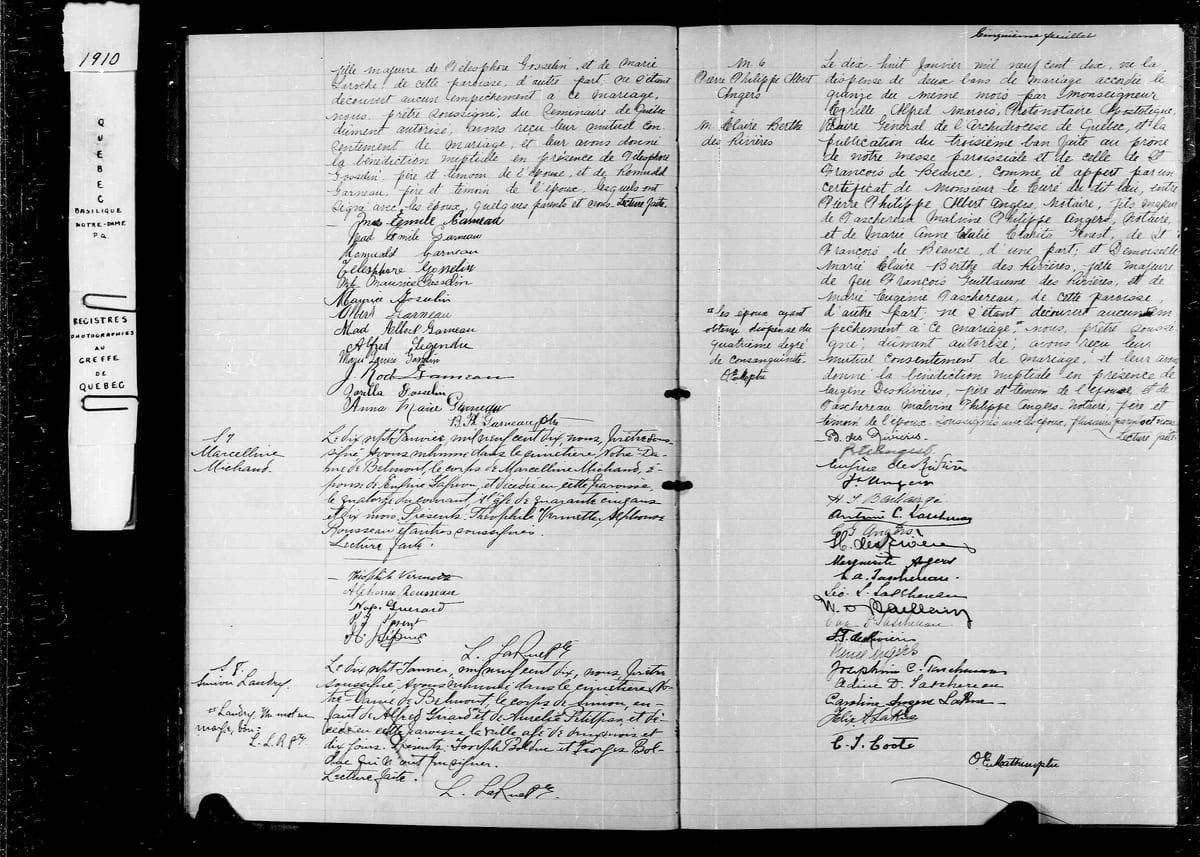 1910
QUEBEC
BASILIQUE
NOTRE-DAME
P.Q.
REGISTRES
PHOTOGRAPHIES
AU
GREFFE
DE
QUEBEC
fille majeure de Télesphore Gosselin, et de Marie
Laroche, de cette paroisse, d'autre part ne s'étant
découvert aucun empêchement à ce mariage,
nous, prêtre soussigné, du Séminaire de Québec
dûment autorisé, avons reçu leur mutuel con-
sentement de mariage, et leur avons donné
la bénédiction nuptiale en présence de Télesphore
Gosselin, père et témoin de l'épouse, et de Romuald
Garneau, père et témoin de l'époux, lesquels ont
signé avec les époux, quelques parents et nous. Lecture faite.
Emile Garneau
Emile Garneau
Romuald Garneau
Télesphore Gosselin
Maurice Gosselin
Garneau
Mad Albert Garneau
Alfred Legendre
Marie Louise Gosselin
J. Rod Garneau
Gosselin
Anna Marie Garneau
Garneau ptre
S 7
Marcelline
Michaud.
Le dix sept Janvier, mil neuf cent dix, nous, prêtre sous-
signé, avons inhumé dans le cimetière Notre Da-
me de Belmont, le corps de Marcelline Michaud, é-
pouse de Eugène et décédée en cette paroisse,
le quatorze du courant à l'âge de quarante cinq ans
et dix mois. Présents: Théophile Vermette, Alphonse
Rousseau et autres soussignés.
Lecture faite.
Théophile Vermette
Alphonse Rousseau
Nap. Guérard
L. LaRue Ptr.
S 8.
Simon Landry.
Landry. Un mot en
marge, bon.
L. L. R. Ptr.
Le dix sept Janvier, mil neuf cent dix, nous, prêtre
soussigné, avons inhumé dans le cimetière No-
tre-Dame de Belmont, le corps de Simon, en-
fant de Alfred Girard et de Amélie Petitpas, et dé-
cédé en cette paroisse la veille âgé de deux mois et
dix jours. Présents: Joseph Bolduc et Georges Bol-
duc qui n'ont pu signer.
Lecture faite.
L. LaRue Ptr.
Cinquième feuillet
M. 6
Pierre Philippe Albert
Angers
M. Claire Berthe
des Rivières
Le dix huit Janvier mil neuf cent dix, vu la
dispense de deux bans de mariage accordée le
quinze du même mois par Monseigneur
Cyrille Alfred Marois, Protonotaire Apostolique,
Vicaire Général de l'Archidiocèse de Québec, et la
publication du troisième ban faite au prône
de notre messe paroissiale et de celle de St
François de Beauce, comme il appert par un
certificat de Monsieur le Curé du dit lieu, entre
Pierre Philippe Albert Angers, Notaire, fils majeur
de Taschereau Malvine Philippe Angers, Notaire,
et de Marie Anne Genest, de St
François de Beauce, d'une part; et Demoiselle
Marie Claire Berthe des Rivières, fille majeure
de feu François Guillaume des Rivières, et de
Marie Eugénie Taschereau, de cette paroisse,
d'autre part; ne s'étant découvert aucun em-
pêchement à ce mariage, nous, prêtre soussi-
gné, dûment autorisé, avons reçu leur
mutuel consentement de mariage, et leur avons
donné la bénédiction nuptiale en présence de
Eugène DesRivières, père et témoin de l'épouse, et de
Taschereau Malvine Philippe Angers, Notaire, père et
témoin de l'époux soussignés avec les époux, plusieurs parents et nous
Lecture faite
les époux ayant
obtenu dispense du
quatrième degré
de consanguinité.
O.E.M. ptre
B. des Rivières
Eugène des Rivières
Angers
Antoine C. Taschereau
Angers
H. des Rivières
Marguerite Angers
E. A. Taschereau.
Léo. L. Taschereau
Taschereau
des Rivières
Angers
Joséphine C. Taschereau
Adine D. Taschereau
Caroline Angers LaRue
C. J. Coote
O.E. Mathieu ptre